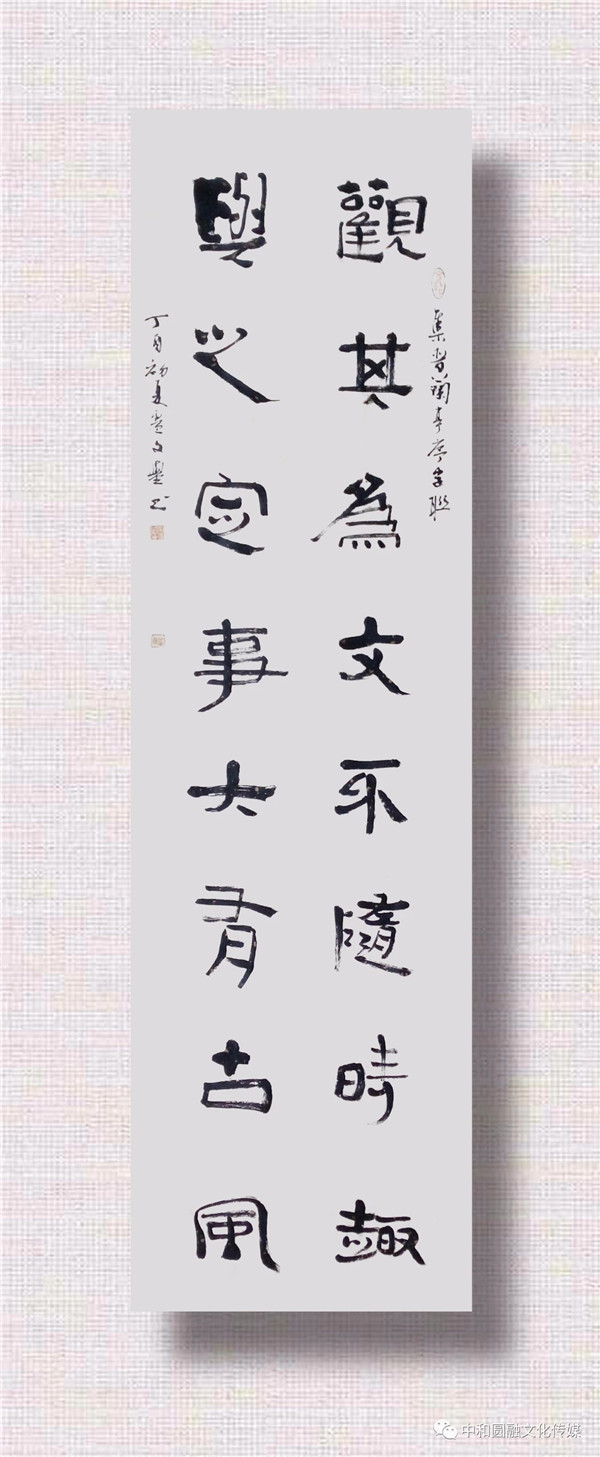 集晉蘭亭序字聯
觀其為文不隨時趣
與之定事大有古風
丁酉初夏
中和圆融文化传媒